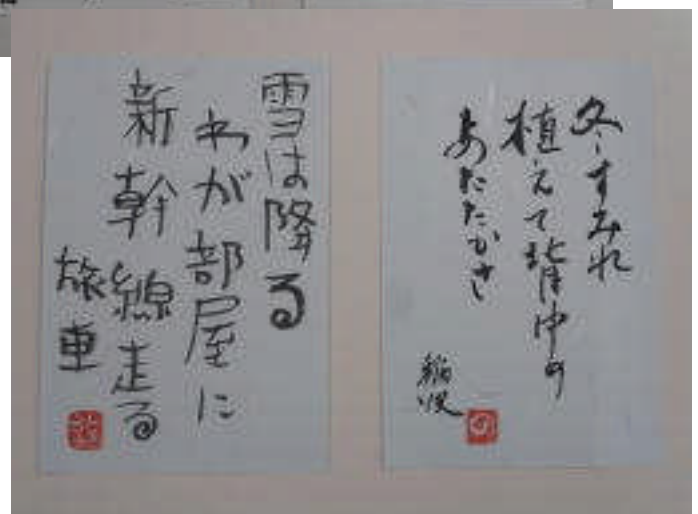 冬すみれ
植えて背中の
あたたかさ
稲波
雪は降る
わが部屋に
新幹線走る
旅重